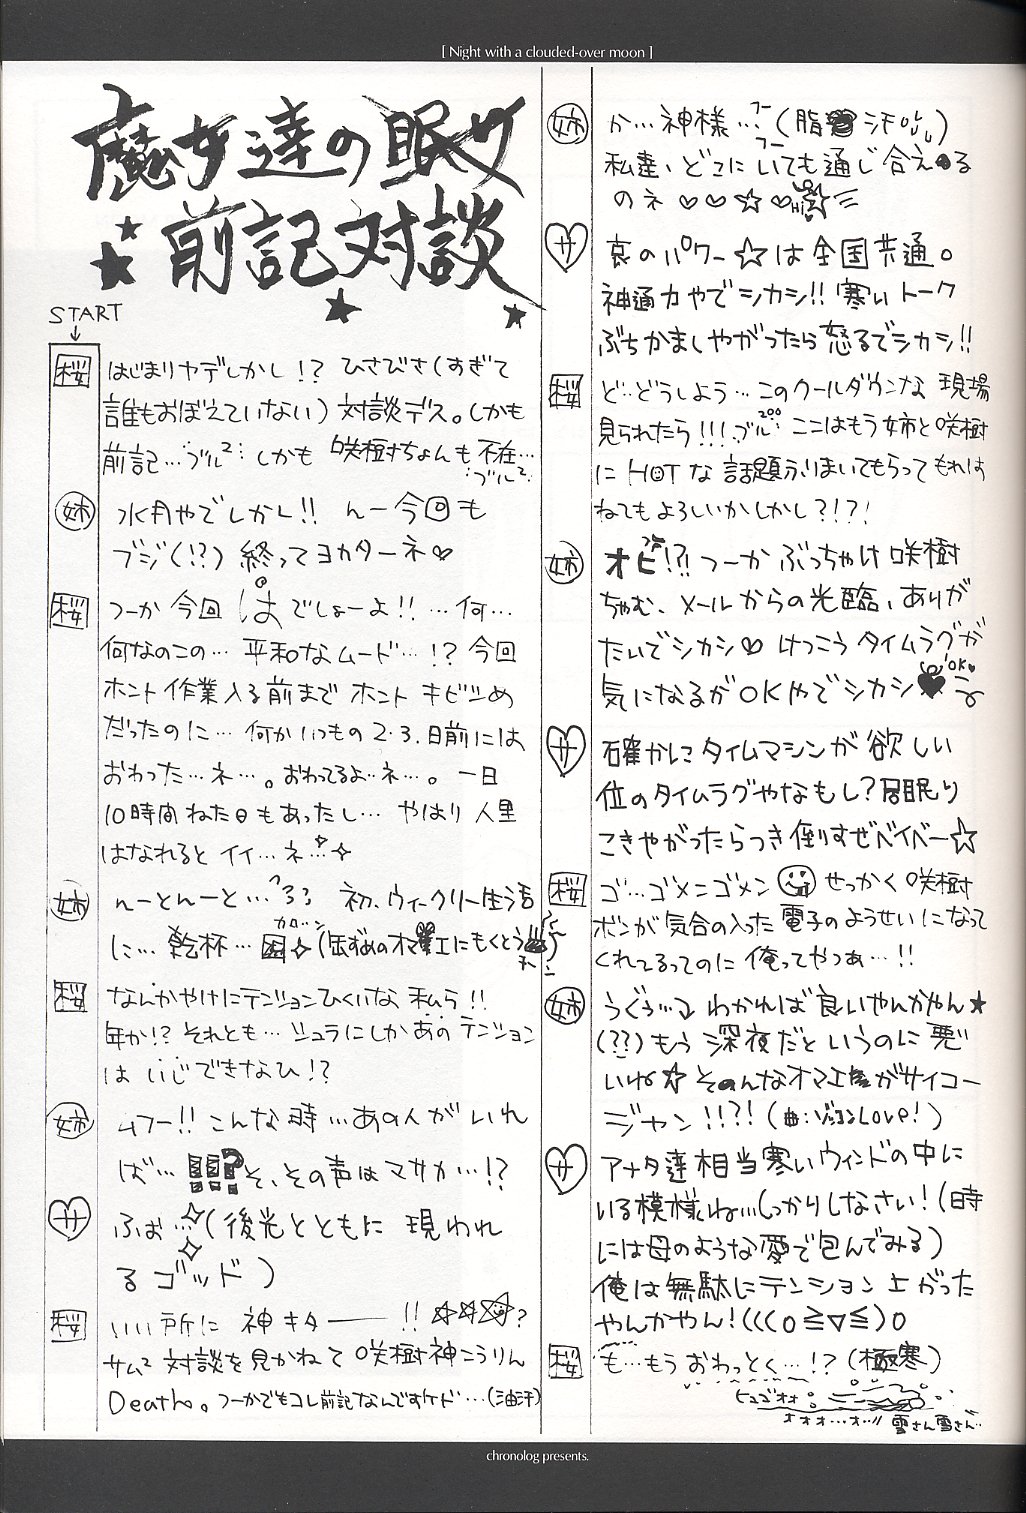 [ Night with a clouded-over moon ]
魔女達の眠サ
前記対談
START
桜 はじまりヤデしかし!? ひさびさ(すぎて
誰もおぼえていない) 対談デス。しかも
前記…ブル² しかも 咲樹ちょんも不在…
ブル²
姉 水月やでしかし!! んー今回も
ブジ(!?) 終ってヨカターネ♡
桜 つーか 今回はでしょーよ!! …何…
何なのこの… 平和なムード…!? 今回
ホント作業入る前まで ホント キビツめ
だったのに… 何かいつもの2・3.日前には
おわった…ネ…。おわってるよ…ネ…。一日
10時間ねた日もあったし… やはり 人里
はなれると イイ…ネ…
姉 んーとんーと… 初、ウィークリー生活
に… 乾杯…
桜 なんかやけにテンションひくいな 私ら!!
年か!? それとも… シュラにしかあのテンション
は いじできなひ!?
姉 ムフー!! こんな時…あの人がいれ
ば… !!!? そ、その声はマサカ…!?
サ ふぉ…(後光とともに 現われ
るゴッド)
桜 いい所に 神キター——!! ☆☆☆?
サム² 対談を見かねて 咲樹神こうりん
Death。つーかでもコレ前記なんですケド…(油汗)
姉 か…神様…フー(脂汗)
フー
私達、どこにいても通じ合える
のネ ♡♡☆♡ Hi
サ 哀のパワー☆は全国共通。
神通力やでシカシ!! 寒いトーク
ぶちかましやがったら怒るでシカシ!!
桜 ど…どうしよう…このクールダウンな 現場
見られたら!!! ブル… ここはもう姉と咲樹
に HOTな 話題ふりまいてもらって もれは
ねてもよろしいかしかし?!?!
姉 オビ!?! つーか ぶっちゃけ 咲樹
ちゃむ、メールからの光臨、ありが
たいでシカシ♡ けっこう タイムラグが
気になるがOKやでシカシ♥ OK♥
サ 確かにタイムマシンが欲しい
位のタイムラグやなもし?居眠り
こきやがったらつき倒すぜベイベー☆
桜 ゴ…ゴメンゴメン せっかく 咲樹
ボンが 気合の入った 電子のようせいになって
くれてるってのに 俺ってやつぁ…!!
姉 うぐぅ… わかれば良いやんかやん★
(??)もう 深夜だと いうのに 悪
いね☆ そのんなオマエ がサイコー
ジャン!!?! (曲:ゾッコンLove!)
サ アナタ達相当寒いウィンドの中に
いる模様ね…しっかりしなさい!(時
には母のような愛で包んでみる)
俺は無駄にテンション上がった
やんかやん!(((o≧▽≦)o
桜 も…もう おわっとく…!? (極寒)
ヒュゴオオ
オオオ…オ…!! 雪さん雪さん…
chronolog presents.